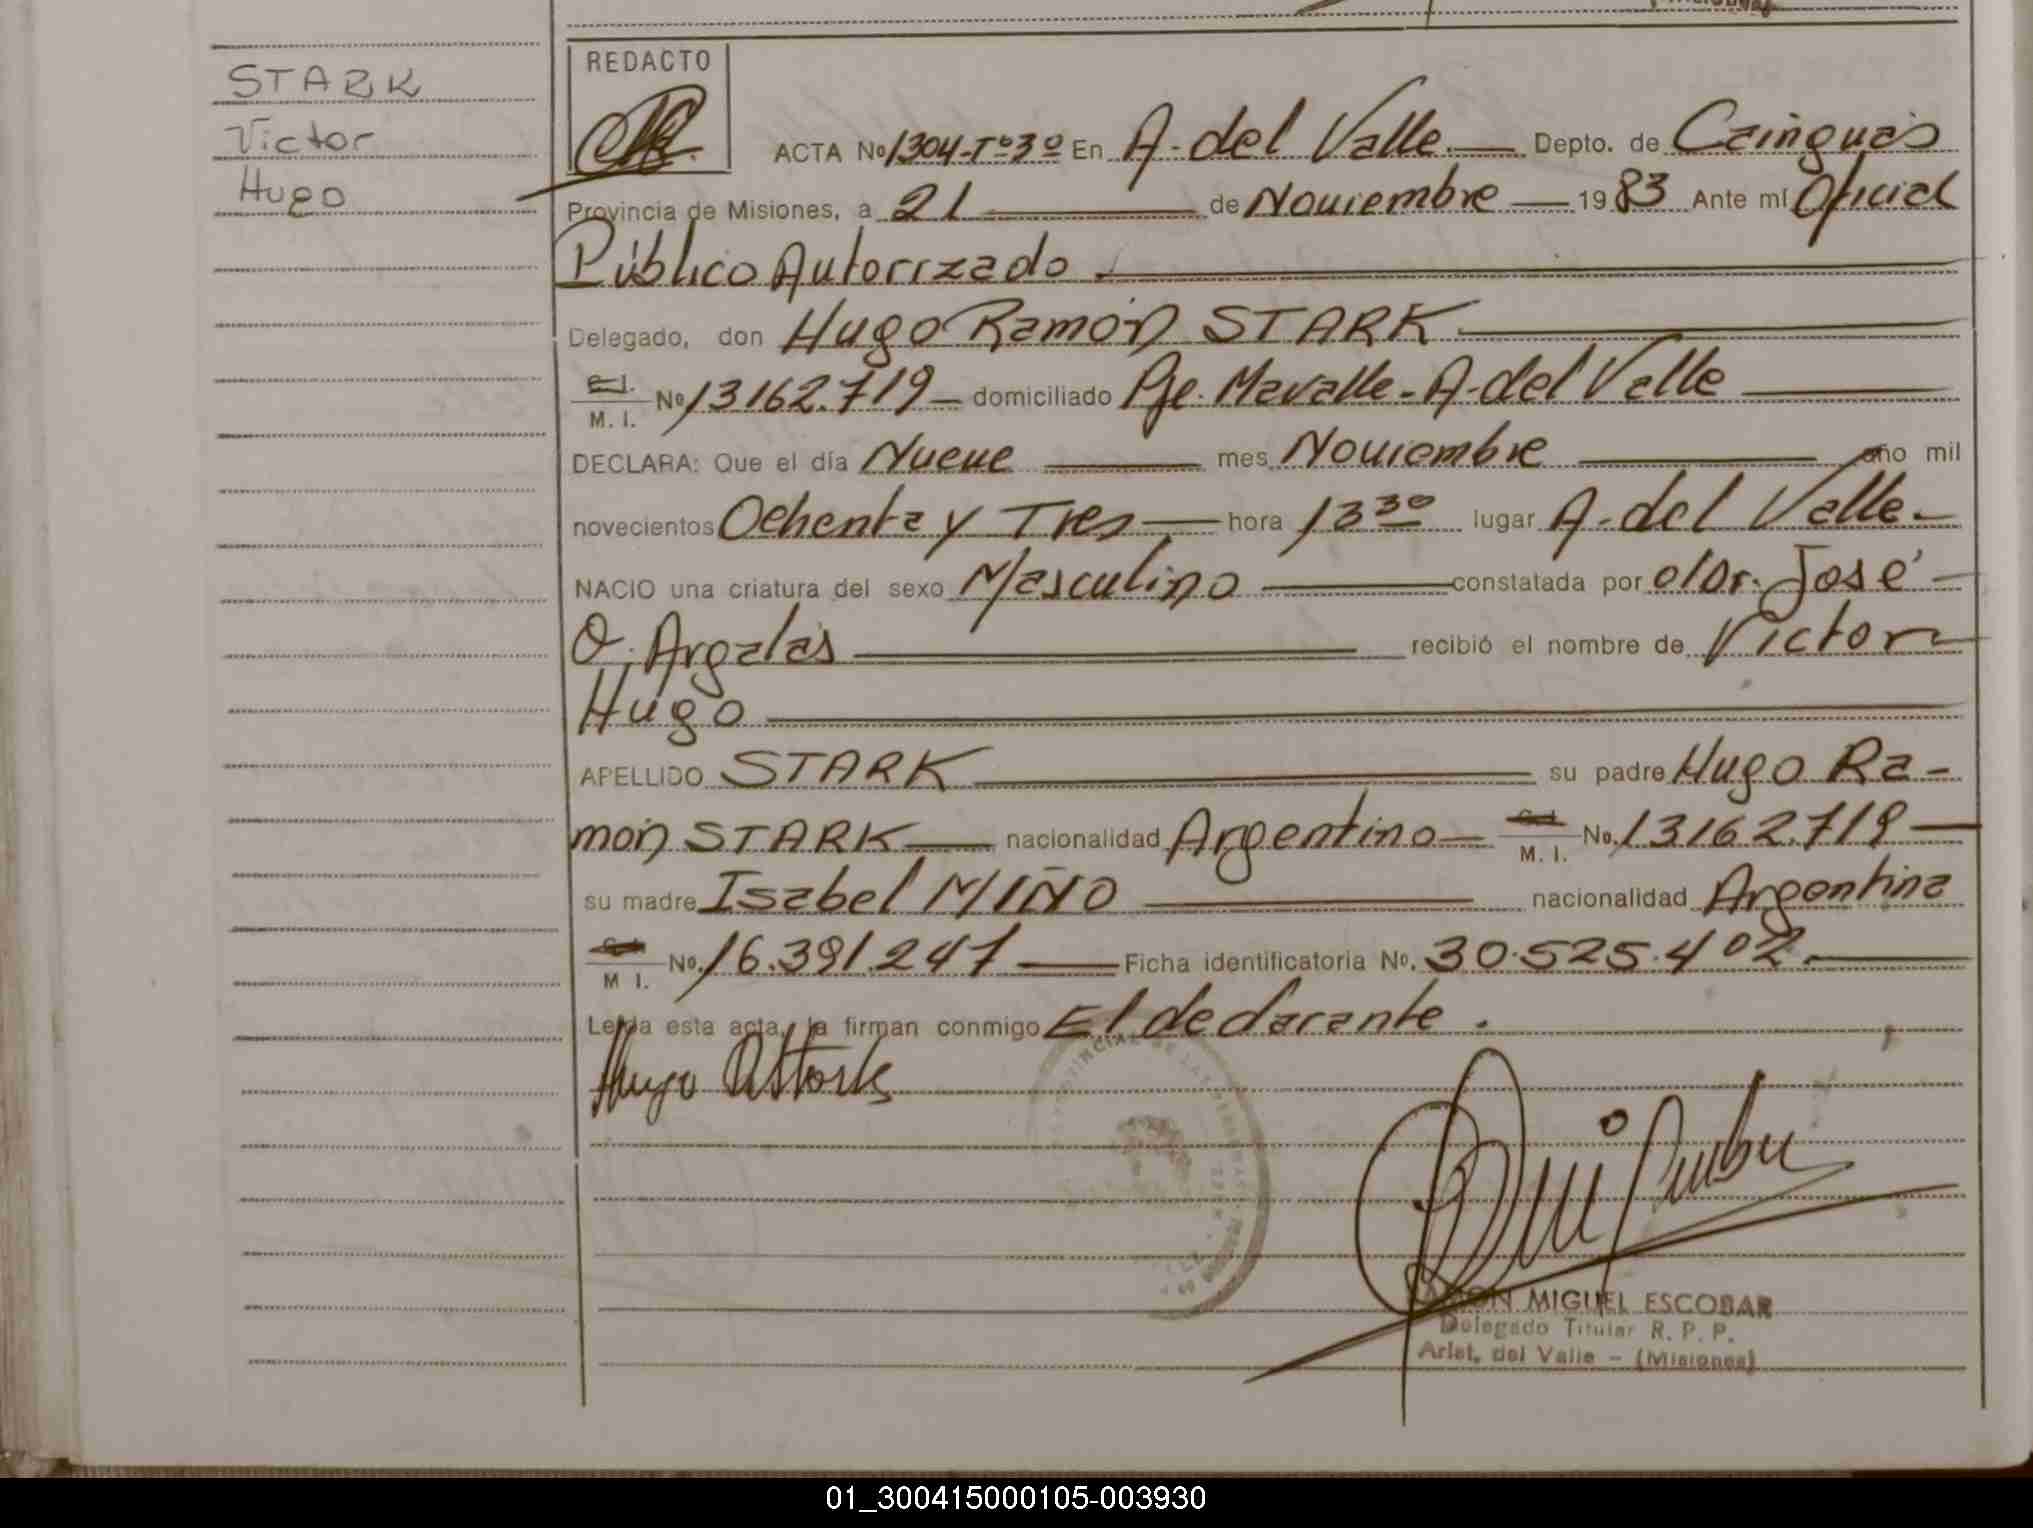 STARK
Victor
Hugo
REDACTO
ACTA No 1304-Tº3º En A. del Valle Depto. de Cainguás
Provincia de Misiones, a 21 de Noviembre 1983 Ante mí Oficial
Público Autorizado.
Delegado, don Hugo Ramón STARK
C. I.
M. I. No 13162.719 domiciliado Pje. Mavalle - A. del Valle
DECLARA: Que el día Nueve mes Noviembre año mil
novecientos Ochenta y Tres hora 13 30 lugar A. del Valle.
NACIO una criatura del sexo Masculino constatada por el Dr. José
O. Argalás recibió el nombre de Victor
Hugo
APELLIDO STARK su padre Hugo Ra-
món STARK nacionalidad Argentino M. I. No. 13162.719
su madre Isabel MIÑO nacionalidad Argentina
M I. No. 16.391.247 Ficha identificatoria No. 30.525.402.
Leída esta acta, la firman conmigo El declarante.
Hugo R Stark
MIGUEL ESCOBAR
Delegado Titular R. P. P.
Arist. del Valle - (Misiones)
01_300415000105-003930